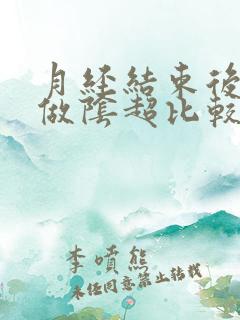 月經結束後
做陰超比較
李噴熊
未经同意禁止转载